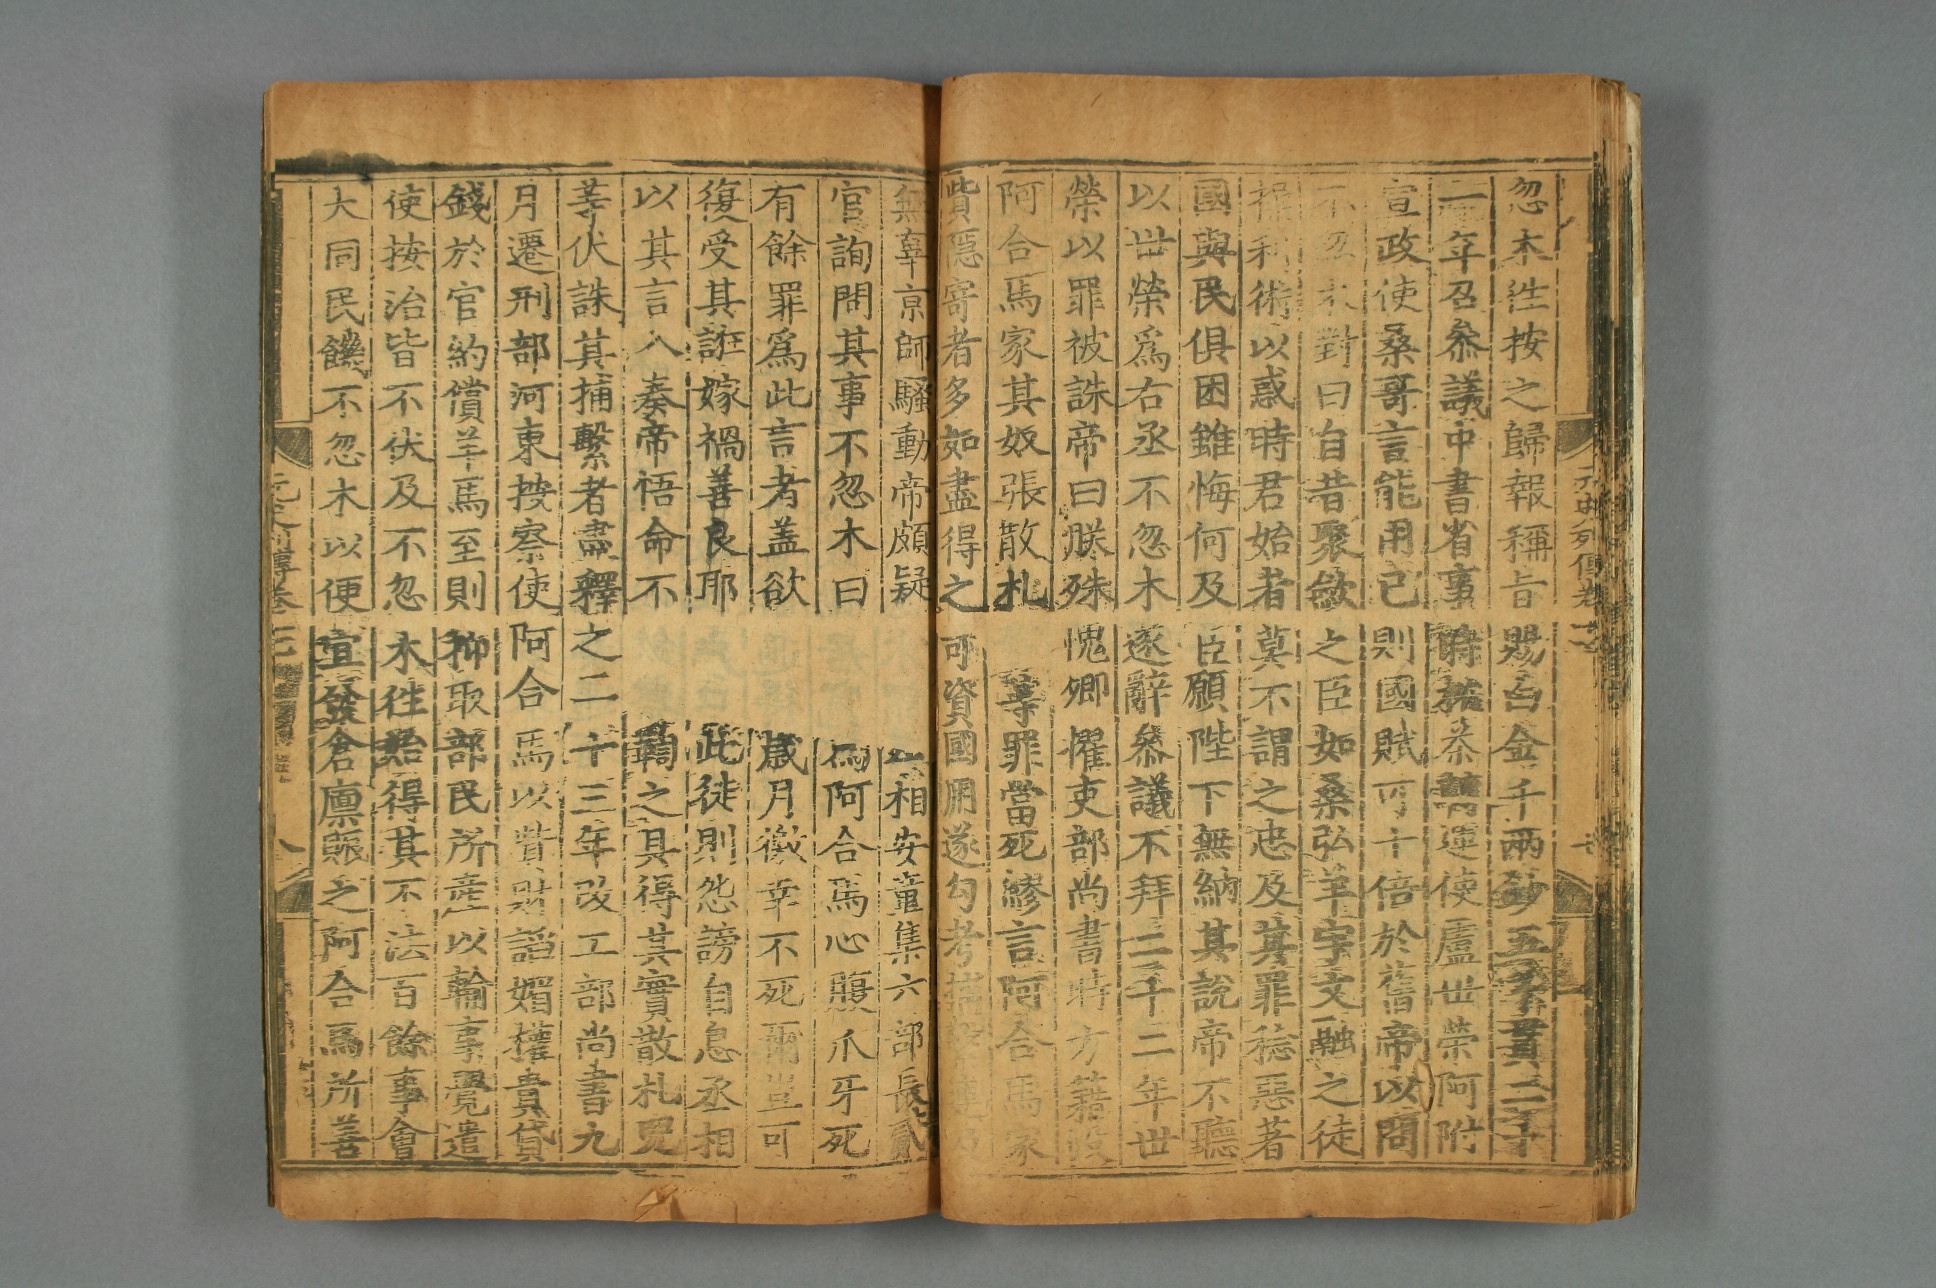 忽木徃按之歸報稱旨賜白金千兩鈔五千貫二十
二年召叅議中書省事時榷茶轉運使盧世榮阿附
宣政使桑哥言能用己則國賦可十倍於舊帝以問
不忽木對曰自昔聚斂之臣如桑弘羊宇文融之徒
操利術以惑時君始者莫不謂之忠及其罪稔惡著
國與民俱困雖悔何及臣願陛下無納其說帝不聽
以世榮爲右丞不忽木遂辭叅議不拜二十二年世
榮以罪被誅帝曰朕殊愧卿擢吏部尚書時方籍没
阿合馬家其奴張散札等罪當死繆言阿合馬家
貲隱寄者多如盡得之可資國用遂勾考捕
無辜京師騷動帝頗疑
相安童集六部長貳
官詢問其事不忽木曰
爲阿合馬心腹爪牙死
有餘罪爲此言者蓋欲
歲月徼幸不死爾豈可
復受其誑嫁禍善良耶
此徒則怨謗自息丞相
以其言入奏帝悟命不
鞫之具得其實散札兒
等伏誅其捕繫者盡釋之二十三年改工部尚書九
月遷刑部河東按察使阿合馬以貲財諂媚權貴貸
錢於官約償羊馬至則抑取部民所産以輸事覺遣
使按治皆不伏及不忽木徃始得其不法百餘事會
大同民饑不忽木以便宜發倉廩賑之阿合馬所善
元史列傳卷